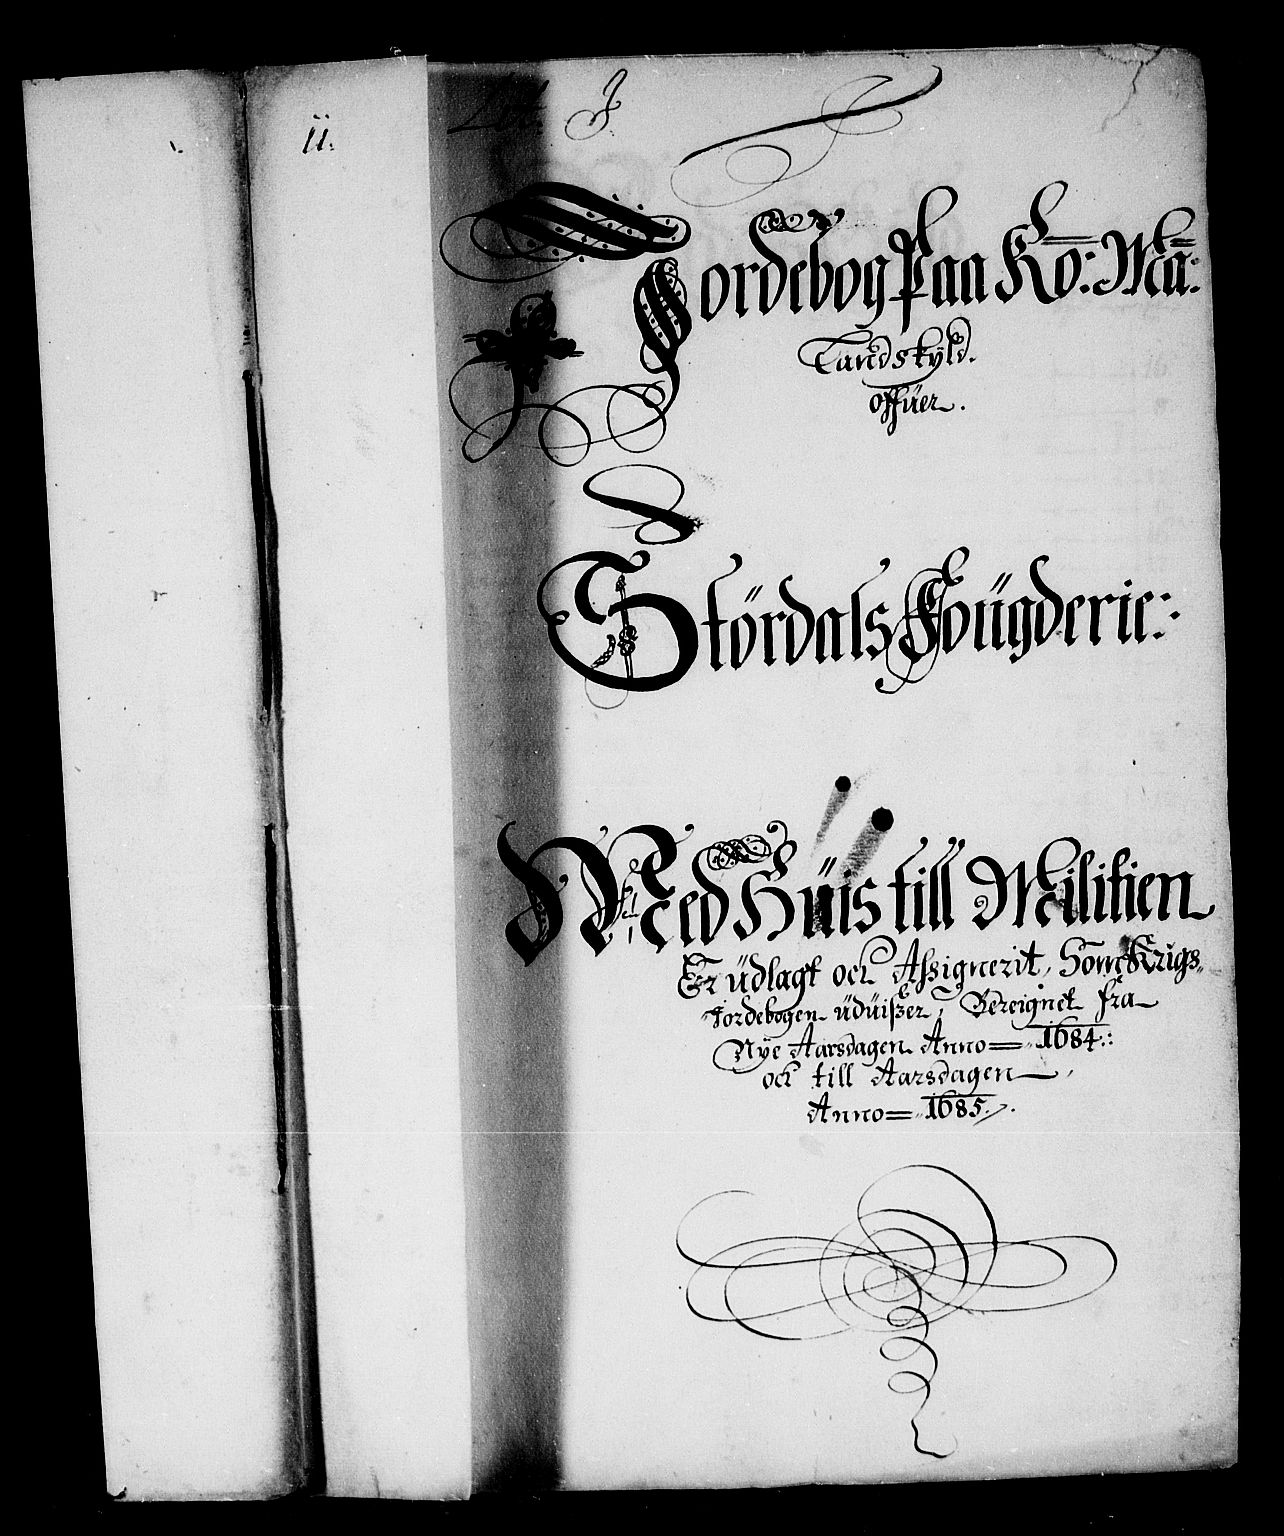 11.
Lit. J
Jordebog Paa Ko: Ma:
Landskyld.
offüer.
Stördals Fougderie:
Med Hüis till Militien
Er üdlagt och Assignerit, Som Krigs
Jordebogen üdüißer, Bereignet fra
Nye Aarsdagen Anno 1684:
och till Aarsdagen
Anno 1685.